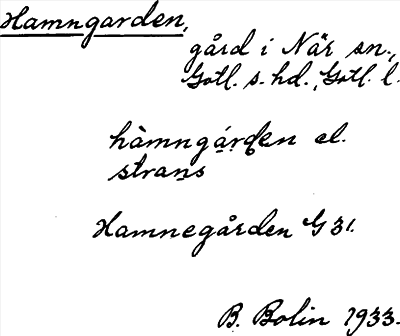 Hamngarden,
gård i När sn.,
Gotl. s. hd., Gotl. l.
hàmngá̱rđen el.
strans
Hamnegården G 31.
B. Bolin 1933.